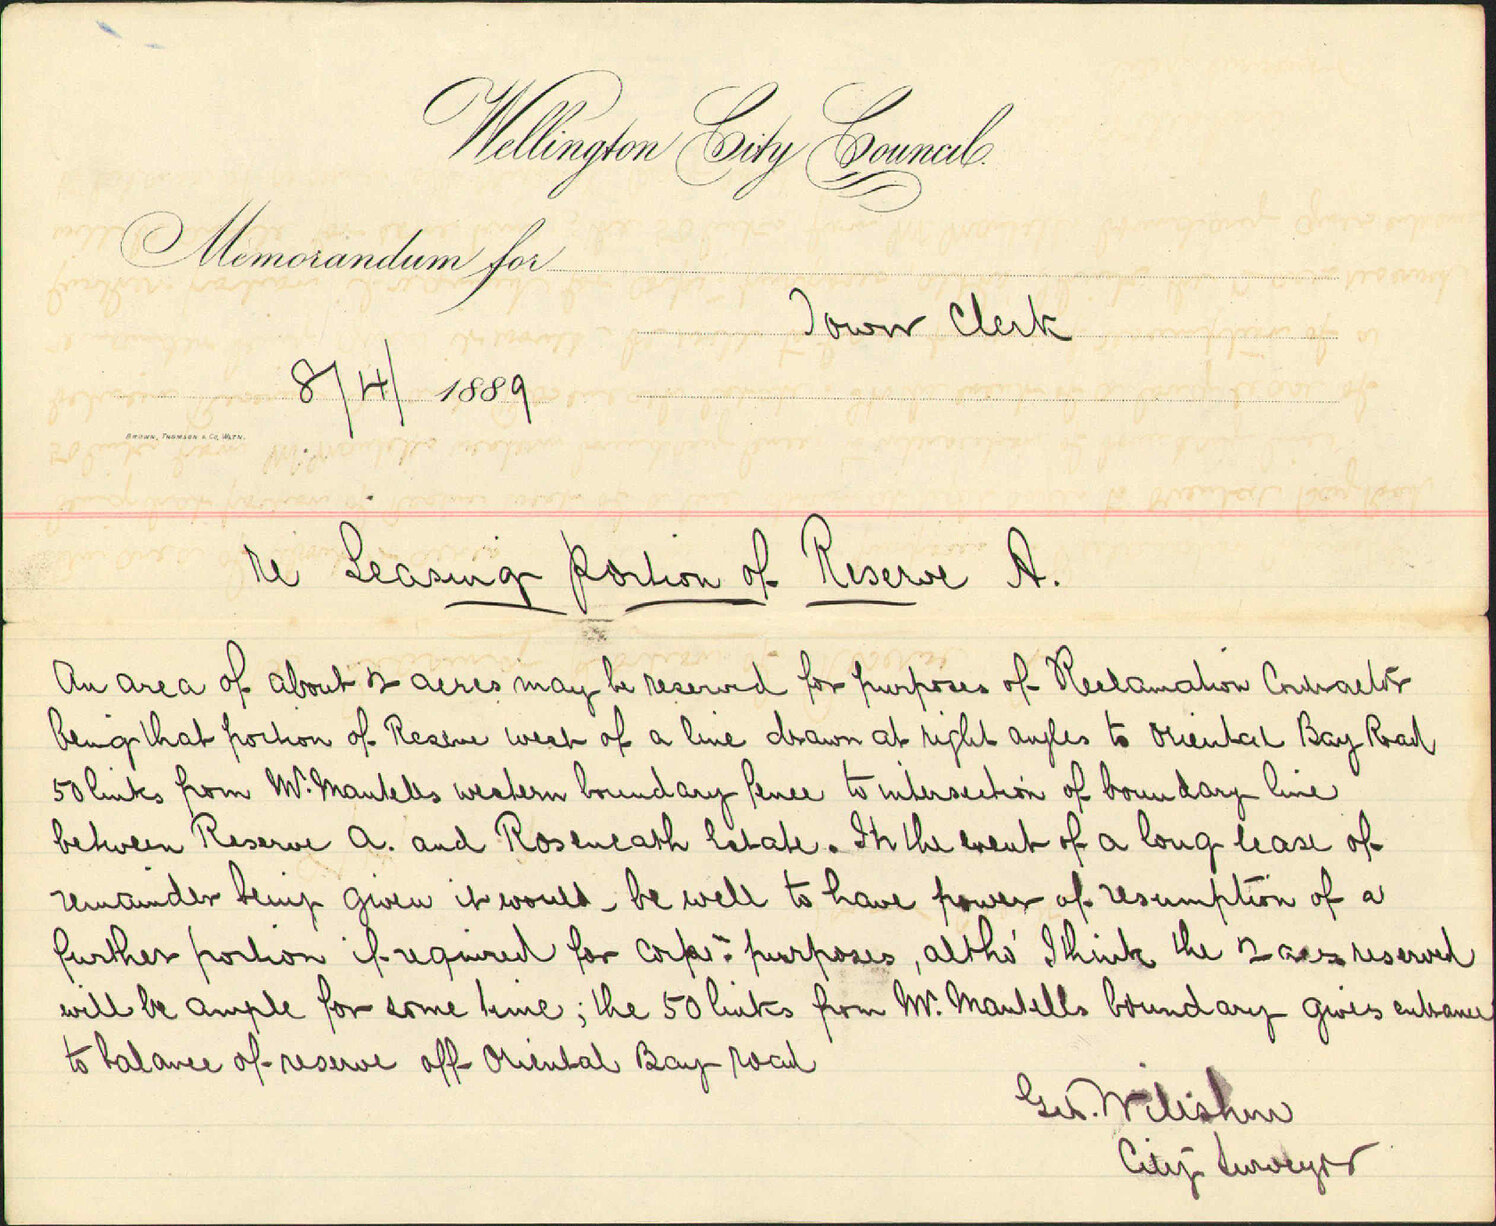 Wellington City Council.
Memorandum for
Town Clerk
8/4/ 1889
BROWN, THOMSON & CO, WLTN.
re Leasing portion of Reserve A.
An area of about 2 acres may be reserved for purposes of Reclamation Contractor
being that portion of Reserve west of a line drawn at right angles to Oriental Bay Road
50 links from Mr. Mantells western boundary fence to intersection of boundary line
between Reserve A. and Roseneath Estate. In the event of a long lease of
remainder being given it would be well to have power of resumption of a
further portion if required for corpn purposes, altho' I think the 2 acres reserved
will be ample for some time; the 50 links from Mr. Mantells boundary gives entrance
to balance of reserve off Oriental Bay road
Geo. Wiltshire
City Surveyor